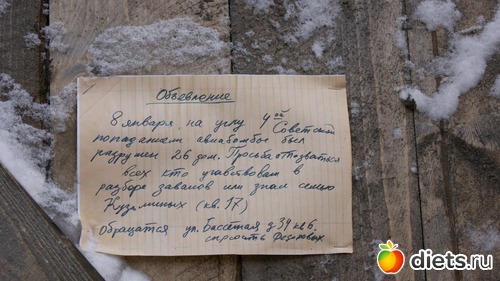 Объевление
8 января на углу 4ой Советской
попаданием авиабомбы был
разрушен 26 дом. Просьба отозваться
всех кто учавствовал в
разборе завалов или знал семью
Кузьминых (кв. 17)
Обращатся ул. Бассейная д 34 кв 6.
спросить Федоровых
diets.ru